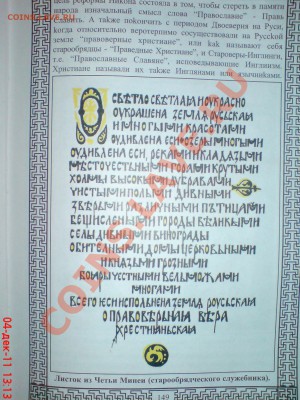 цели реформы Никона состояла в том, чтобы стереть в памяти
народа изначальный смысл слова "Православие" - Правь
Славить. А также покончить с последствиями Двоеверия на Руси,
когда относительно веротерпимо сосуществовали на Русской
земле "правоверные христиане", или как называют себя
старообрядцы - "Праведные Христиане", и Староверы-Инглинги,
т.е. "Православные Славяне", исповедующие Инглиизм.
Христиане называли их также Инглянами или язычниками.
О СВѢТЛО СВѢТЛАЯ И ОУКРАСНО
ОУКРАШЕНА ЗЕМЛЯ РОУСЬКАЯ
И МНОГЫМИ КРАСОТАМИ
ОУДИВЛЕНА ЕСИ ОЗЕРЫ МНОГЫМИ
ОУДИВЛЕНА ЕСИ, РѢКАМИ И КЛАДѦЗЬМИ
МѢСТОЧЕСТЬНЫМИ ГОРАМИ КРУТЫМИ
ХОЛМЫ ВЫСОКЫМИ ДУБРАВАМИ
ЧИСТЫМИ ПОЛЬМИ ДИВНЫМИ
ЗВѢРЬМИ РАЗЛИЧНЫМИ ПЪТИЦАМИ
БЕЩИСЛЕНЫМИ ГОРОДЫ ВЕЛИКЫМИ
СЕЛЫ ДИВНЫМИ ВИНОГРАДЫ
ОБИТЕЛЬНЫМИ ДОМЫ ЦЕРКОВЬНЫМИ
И КНЯЗЬМИ ГРОЗНЫМИ
БОЯРЫ ЧЕСТНЫМИ ВЕЛЬМОЖАМИ
МНОГАМИ
ВСЕГО ЕСИ ИСПОЛНЕНА ЗЕМЛЯ РОУСЬСКАЯ
О ПРАВОВѢРНАЯ ВѢРА
ХРЕСТИЯНЬСКАЯ
Листок из Четьи Минеи (старообрядческого служебника).
149
COINSS.RU
04-дек-11 13:13